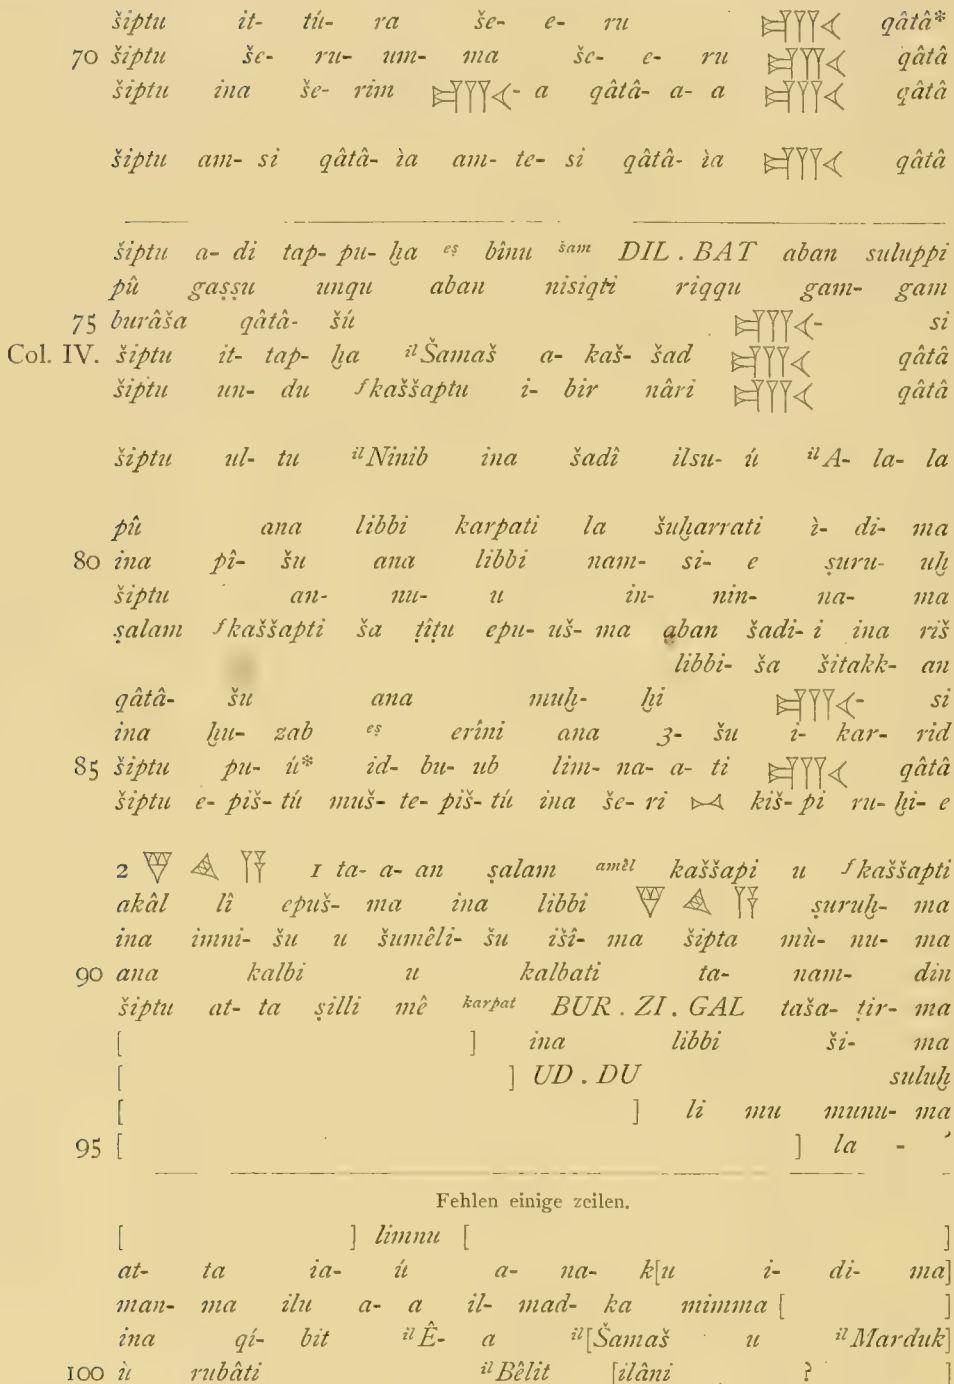 šiptu it- tú- ra še- e- ru 𒈛 qâtâ*
70 šiptu še- ru- um- ma še- e- ru 𒈛 qâtâ
šiptu ina še- rim 𒈛- a qâtâ- a- a 𒈛 qâtâ
šiptu am- si qâtâ- ìa am- te- si qâtâ- ìa 𒈛 qâtâ
šiptu a- di tap- pu- ḫa eṣ bînu šam DIL . BAT aban suluppi
pû gaṣṣu unqu aban nisiqti riqqu gam- gam
75 burâša qâtâ- šú 𒈛- si
Col. IV. šiptu it- tap- ḫa il Šamaš a- kaš- šad 𒈛 qâtâ
šiptu un- du f kaššaptu i- bir nâri 𒈛 qâtâ
šiptu ul- tu il Ninib ina šadî ilsu- ú il A- la- la
pû ana libbi karpati la šuḫarrati ì- di- ma
80 ina pî- šu ana libbi nam- si- e ṣuru- uḫ
šiptu an- nu- u in- nin- na- ma
ṣalam f kaššapti ša ṭîṭu epu- uš- ma aban šadi- i ina riš
libbi- ša šitakk- an
qâtâ- šu ana muḫ- ḫi 𒈛- si
ina ḫu- zab eṣ erîni ana 3- šu i- kar- rid
85 šiptu pu- ú* id- bu- ub lim- na- a- ti 𒈛 qâtâ
šiptu e- piš- tú muš- te- piš- tú ina še- ri kiš- pi ru- ḫi- e
2 1 ta- a- an ṣalam amêl kaššapi u f kaššapti
akâl lî epuš- ma ina libbi ṣuruḫ- ma
ina imni- šu u šumêli- šu išî- ma šipta mù- nu- ma
90 ana kalbi u kalbati ta- nam- din
šiptu at- ta ṣilli mê karpat BUR . ZI . GAL taša- ṭir- ma
[ ] ina libbi ši- ma
[ ] UD . DU suluḫ
[ ] li mu munu- ma
95 [ ] la - ʾ
Fehlen einige zeilen.
[ ] limnu [ ]
at- ta ia- ú a- na- k[u i- di- ma]
man- ma ilu a- a il- mad- ka mimma [ ]
ina qí- bit il Ê- a il [Šamaš u il Marduk]
100 ù rubâti il Bêlit [ilâni ? ]